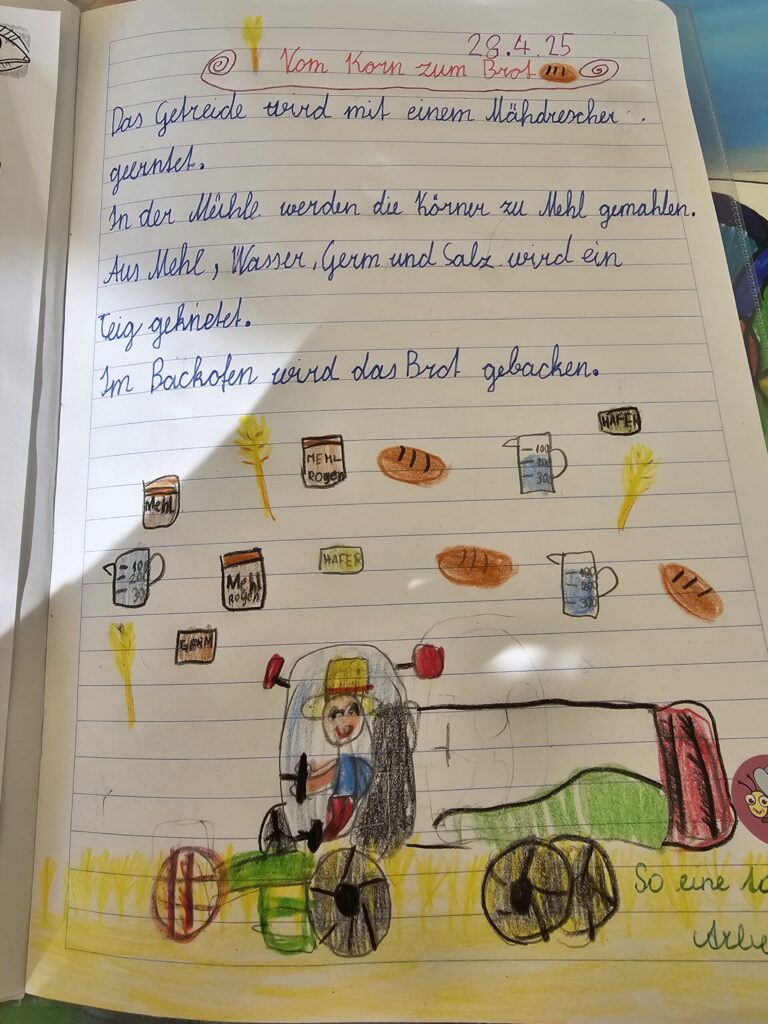 28.4.25
Vom Korn zum Brot
Das Getreide wird mit einem Mähdrescher
geerntet.
In der Mühle werden die Körner zu Mehl gemahlen.
Aus Mehl, Wasser, Germ und Salz wird ein
Teig geknetet.
Im Backofen wird das Brot gebacken.
HAFER
MEHL
Rogen
100
200
300
Mehl
100
200
300
Mehl
Rogen
HAFER
100
200
300
GERM
So eine